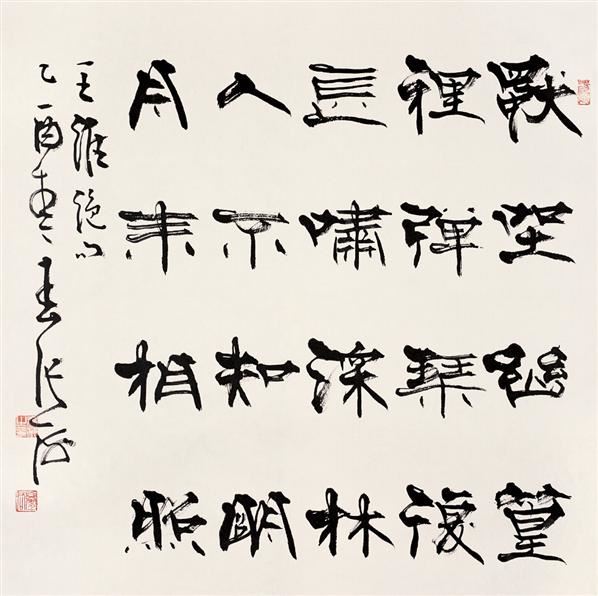 獨坐幽篁
裡彈琴復
長嘯深林
人不知明
月來相照
王維絕句
乙酉 張海